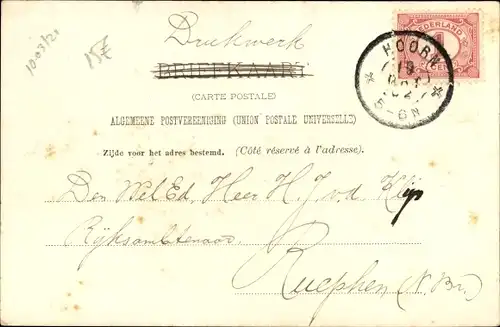 1003/20
15£
Drukwerk
NEDERLAND
1
CENT
HOORN
19
02
5-6N
BRIEFKAART
(CARTE POSTALE)
ALGEMEENE POSTVEREENIGING (UNION POSTALE UNIVERSELLE)
Zijde voor het adres bestemd. (Côté réservé à l'adresse).
Den Wel Ed. Heer H. J. v. d. Klip
Rijksambtenaar
Rucphen (N. Br.)